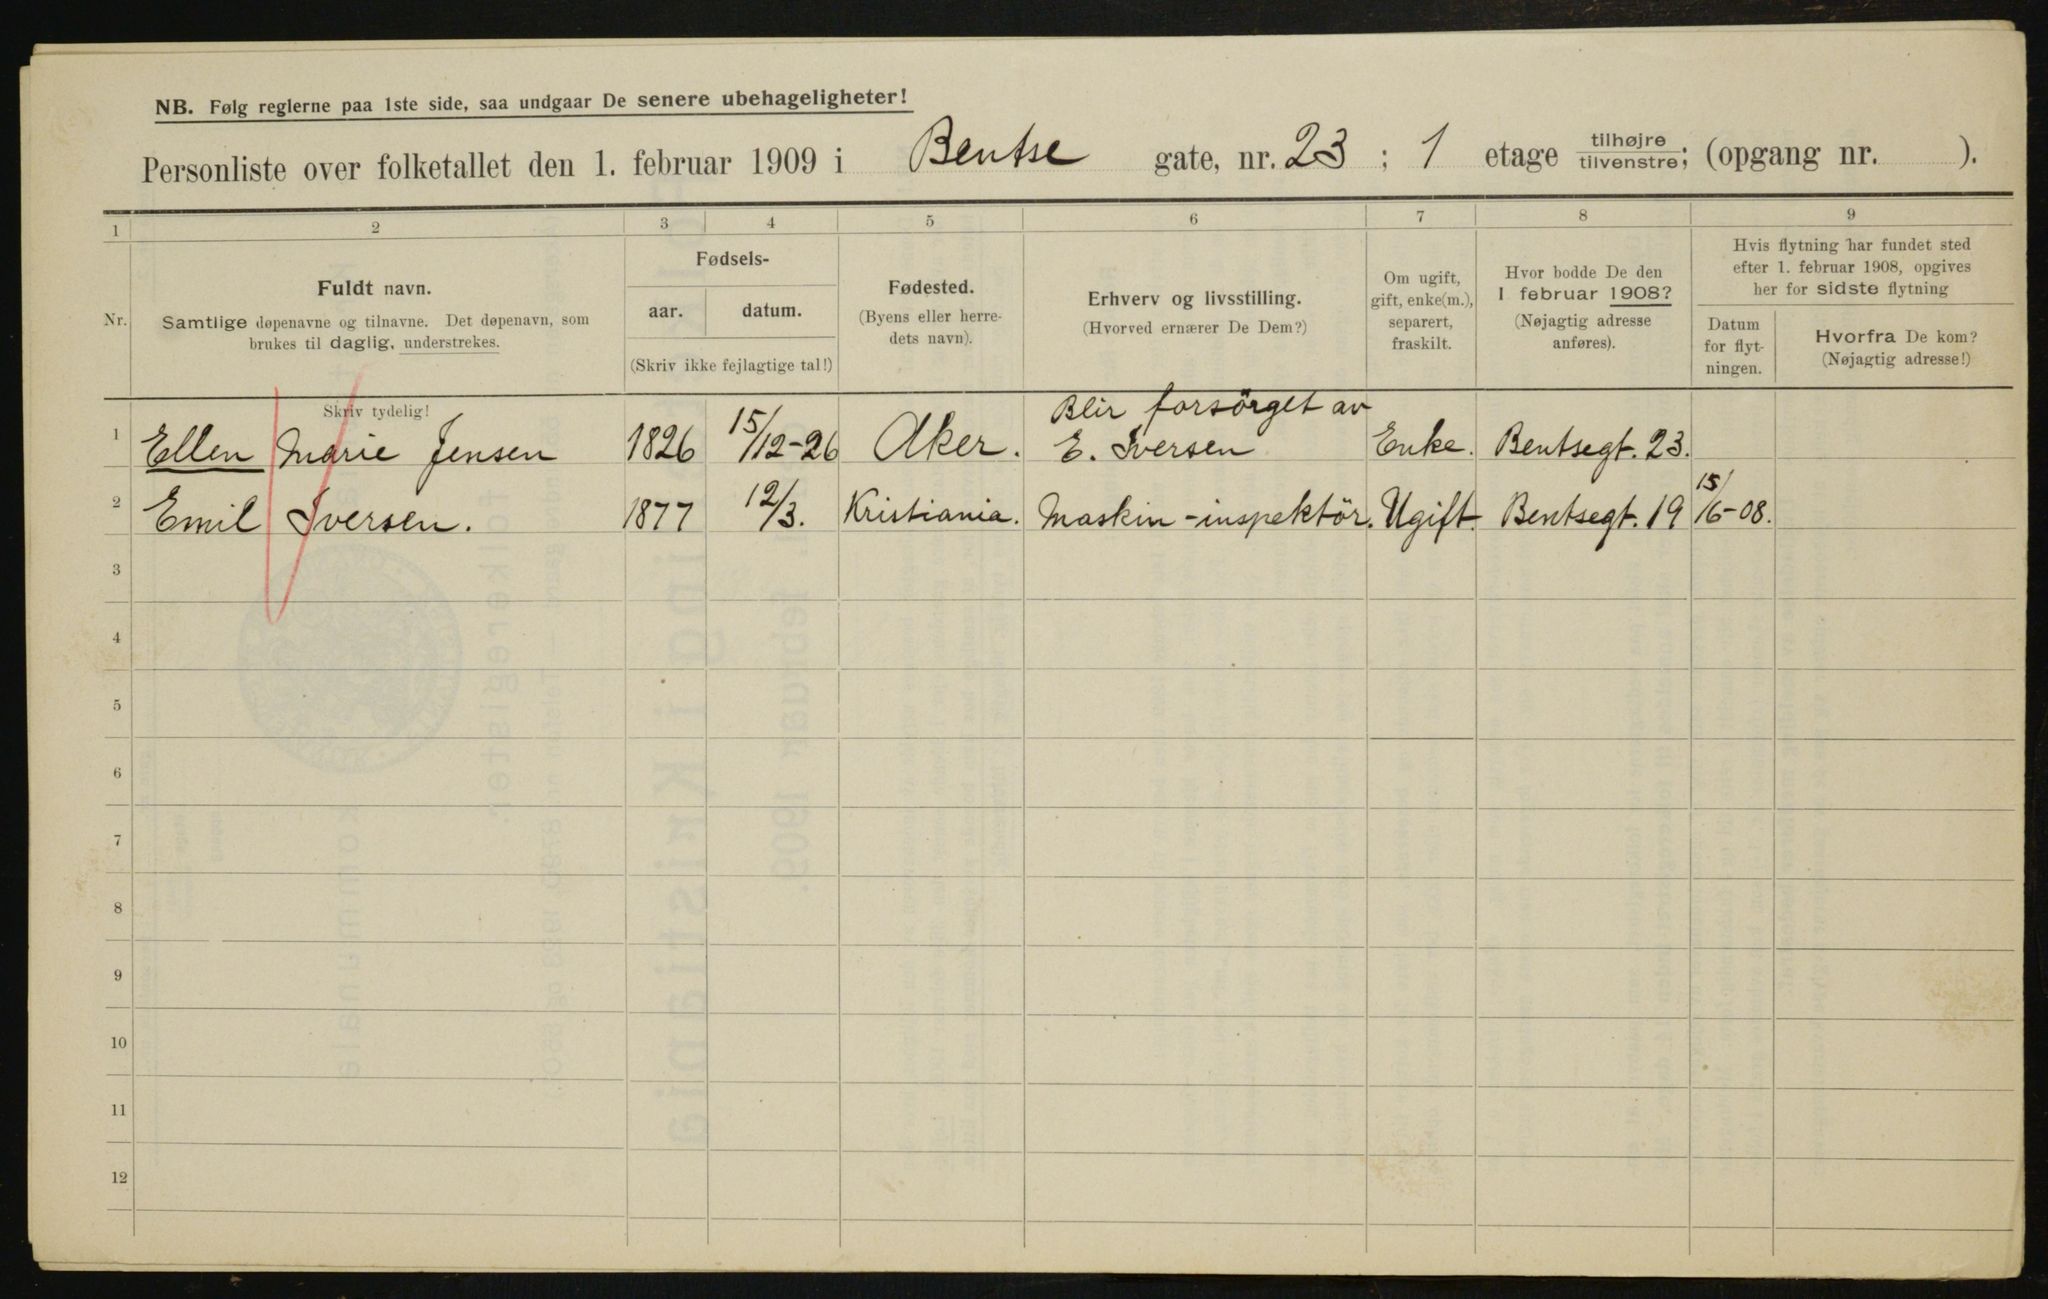 NB. Følg reglerne paa 1ste side, saa undgaar De senere ubehageligheter!
Personliste over folketallet den 1. februar 1909 i Bentse gate, nr. 23 ; 1 etage tilhøjre tilvenstre; (opgang nr. ).
1 2 3 4 5 6 7 8 9
Nr.
Fuldt navn.
Samtlige døpenavne og tilnavne. Det døpenavn, som
brukes til daglig, understrekes.
Skriv tydelig!
Fødsels-
aar. datum.
(Skriv ikke fejlagtige tal!)
Fødested.
(Byens eller herre-
dets navn).
Erhverv og livsstilling.
(Hvorved ernærer De Dem?)
Om ugift,
gift, enke(m.),
separert,
fraskilt.
Hvor bodde De den
1 februar 1908?
(Nøjagtig adresse
anføres).
Hvis flytning har fundet sted
efter 1. februar 1908, opgives
her for sidste flytning
Datum
for flyt-
ningen.
Hvorfra De kom?
(Nøjagtig adresse!)
Blir forsörget av
1 Ellen Marie Jensen 1826 15/12-26 Aker. E. Iversen Enke. Bentsegt. 23.
2 Emil Iversen. 1877 12/3. Kristiania. Maskin-inspektör. Ugift. Bentsegt. 19 15/6-08.
3
4
5
6
7
8
9
10
11
12